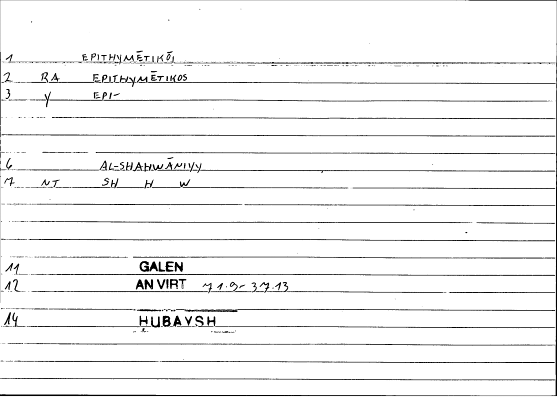 1 EPITHYMĒTIKŌI
2 RA EPITHYMĒTIKOS
3 Y EPI-
6 AL-SHAHWĀNIYY
7 NJ SH H W
11 GALEN
12 AN VIRT 71.9-37.13
14 HUBAYSH